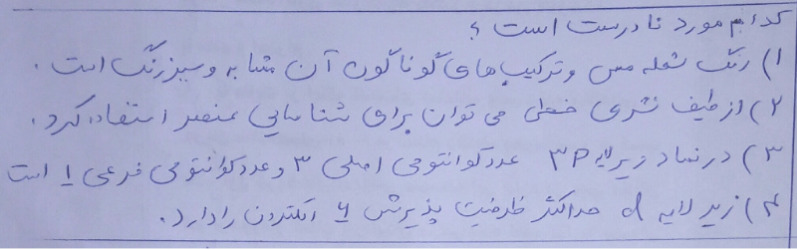 کدام مورد نادرست است ؟
۱) رنگ شعله مس و ترکیب‌های گوناگون آن مشابه و سبز رنگ است .
۲) از طیف نشری خطی می توان برای شناسایی عنصر استفاده کرد .
۳) در نماد زیرلایه 3P عدد کوانتومی اصلی ۳ و عدد کوانتومی فرعی 1 است
۴) زیر لایه d حداکثر ظرفیت پذیرش ۶ الکترون را دارد .